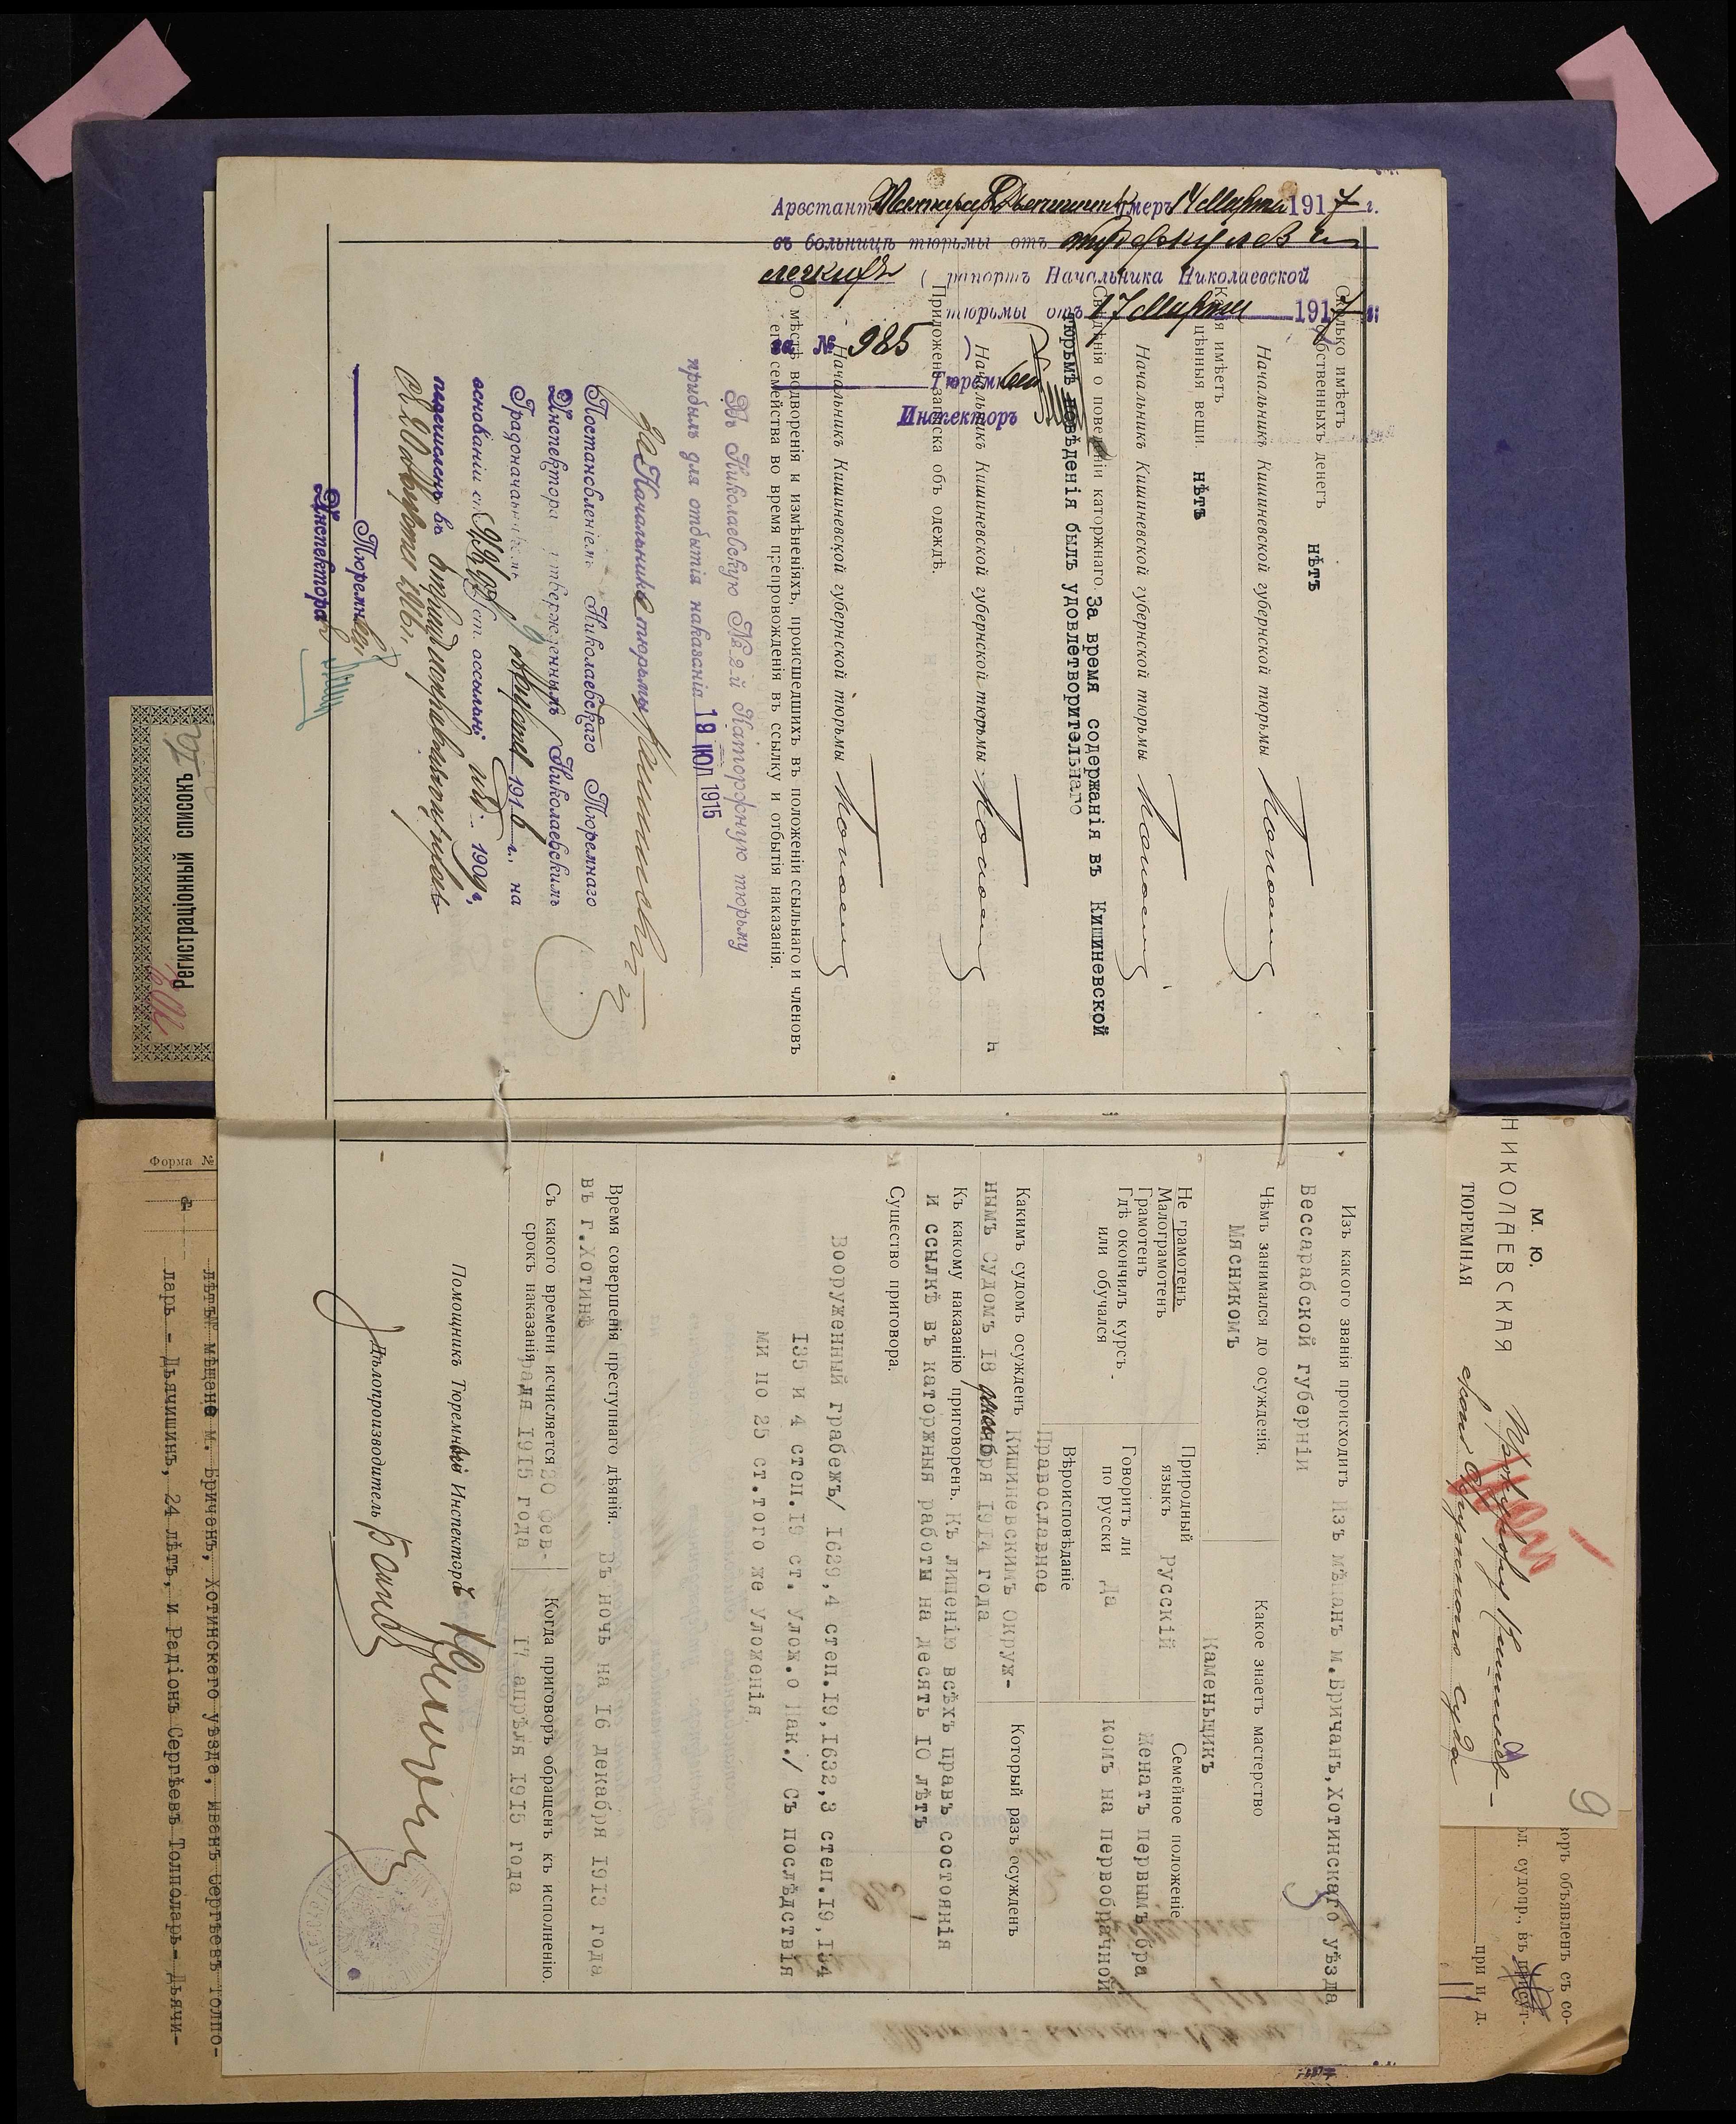 Арестантъ умеръ 14 Марта 1917 г.
въ больницѣ тюрьмы отъ туберкулеза
легкихъ ( рапортъ Начальника Николаевской
тюрьмы отъ 17 Марта 1917 г.
за № 985
Тюремный
Инспекторъ
Сколько имѣетъ
собственныхъ денегъ нѣтъ
Начальникъ Кишиневской губернской тюрьмы
Какія имѣетъ
цѣнныя вещи. нѣтъ
Начальникъ Кишиневской губернской тюрьмы
Свѣдѣнія о поведеніи каторжнаго. За время содержанія въ Кишиневской
тюрьмѣ поведенія былъ удовлетворительнаго
Начальникъ Кишиневской губернской тюрьмы
Приложена записка объ одеждѣ.
Начальникъ Кишиневской губернской тюрьмы
О мѣстѣ водворенія и измѣненіяхъ, происшедшихъ въ положеніи ссыльнаго и членовъ
его семейства во время препровожденія въ ссылку и отбытія наказанія.
Въ Николаевскую № 2-й Каторжную тюрьму
прибылъ для отбытія наказанія 19 ІЮЛ 1915
Начальника тюрьмы
Постановленіемъ Николаевскаго Тюремнаго
Инспектора утвержденнымъ Николаевскимъ
Градоначальникомъ 1916 г., на
основаніи ст. ссыльн. изд. 1909 г.
перечисленъ въ
1916 г.
Тюремный
Инспекторъ
Регистраціонный списокъ
Изъ какого званія происходитъ Изъ мѣщанъ м.Бричанъ,Хотинскаго уѣзда
Бессарабской губерніи
Чѣмъ занимался до осужденія.
Мясникомъ
Какое знаетъ мастерство
Каменьщикъ
Не грамотенъ
Малограмотенъ
Грамотенъ
Гдѣ окончилъ курсъ
или обучался
Природный
языкъ Русскій
Говоритъ ли
по русски да
Вѣроисповѣданіе
Православное
Семейное положеніе
Женатъ первымъ бра
комъ на первобрачной
Какимъ судомъ осужденъ Кишиневскимъ Окруж-
нымъ Судомъ 18 1914 года
Который разъ осужденъ
Къ какому наказанію приговоренъ. Къ лишенію всѣхъ правъ состоянія
и ссылкѣ въ каторжныя работы на десять 10 лѣтъ
Существо приговора.
Вооруженный грабежъ/ 1629,4 степ.19,1632,3 степ.19,134
135 и 4 степ.19 ст. Улож.о Нак./ Съ послѣдствія
ми по 25 ст.того же Уложенія
Время совершенія преступнаго дѣянія. Въ ночь на 16 декабря 1913 года
въ г.Хотинѣ
Съ какого времени исчисляется
срокъ наказанія 20 фев-
раля 1915 года
Когда приговоръ обращенъ къ исполненію.
17 апрѣля 1915 года
Помощникъ Тюремнаго Инспектора
Дѣлопроизводитель
М. Ю.
НИКОЛАЕВСКАЯ
ТЮРЕМНАЯ
Прокурору Кишинев-
скаго Окружнаго суда
9
воръ объявленъ съ со-
ол. судопр., въ присут-
при и. д.
Форма №
лѣтъ мѣщане м. Бричанъ, Хотинскаго уѣзда, Иванъ Сергѣевъ Толпо-
ларь - Дьячишинъ, 24 лѣтъ, и Радіонъ Сергѣевъ Толполарь- Дьячи-